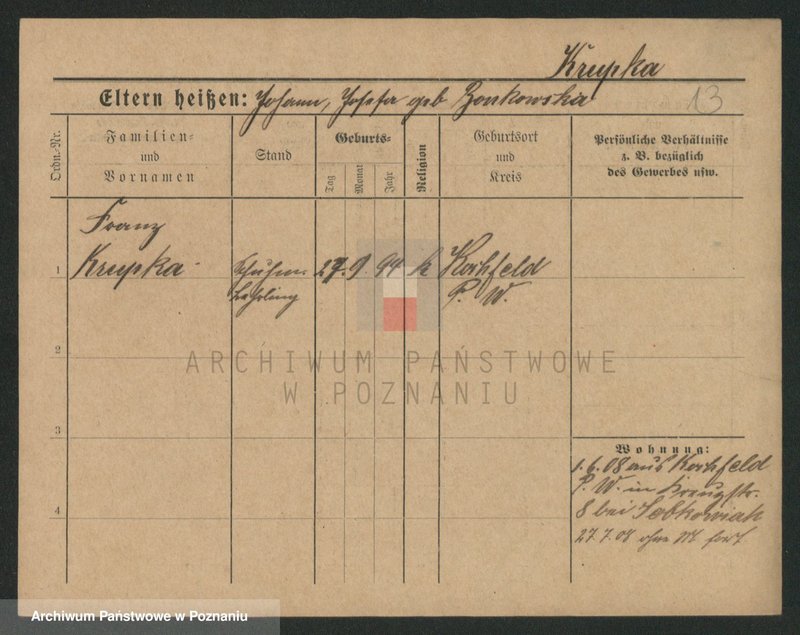 Krupka
Eltern heißen: Johann, Josefa geb Bonkowska 13
Ordn.-Nr.
Familien- und Vornamen
Stand
Geburts-
Tag
Monat
Jahr
Religion
Geburtsort und Kreis
Persönliche Verhältnisse
z. B. bezüglich
des Gewerbes usw.
Franz
1 Krupka Schuhm. 27. 9 94 k Kochfeld
Lehrling P. W.
ARCHIWUM PAŃSTWOWE
W POZNANIU
2
3
Wohnung:
1.6.08 aus Kochfeld
P. W. in Kreuzstr.
8 bei Sobkowiak
4
27.7.08 ohne M fort
Archiwum Państwowe w Poznaniu